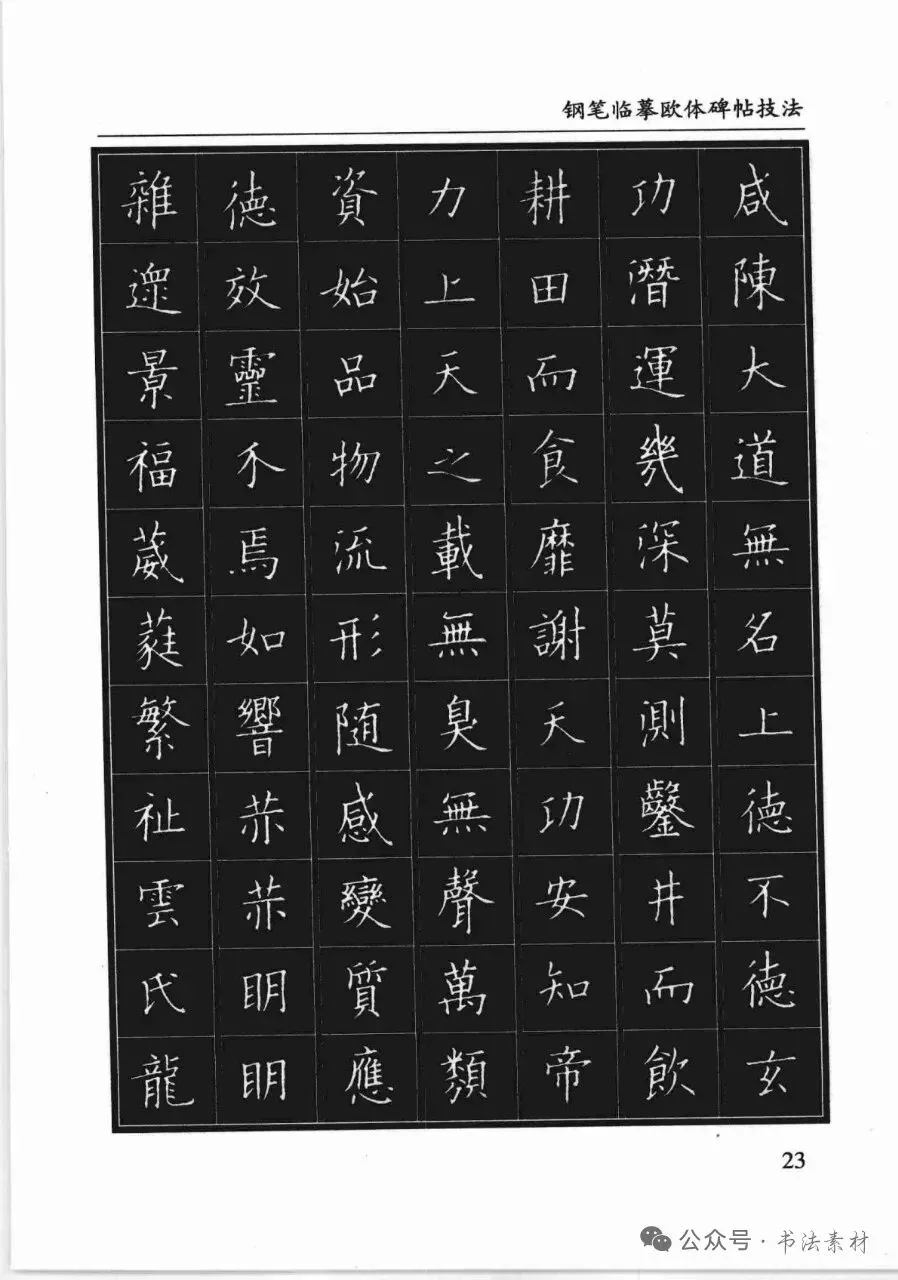 钢笔临摹欧体碑帖技法
咸陳大道無名上德不德玄
功潛運幾深莫測鑿井而飲
耕田而食靡謝天功安知帝
力上天之載無臭無聲萬類
資始品物流形随感變質應
德效靈不焉如響赫赫明明
雜遝景福葳蕤繁祉雲氏龍
23
公众号·书法素材